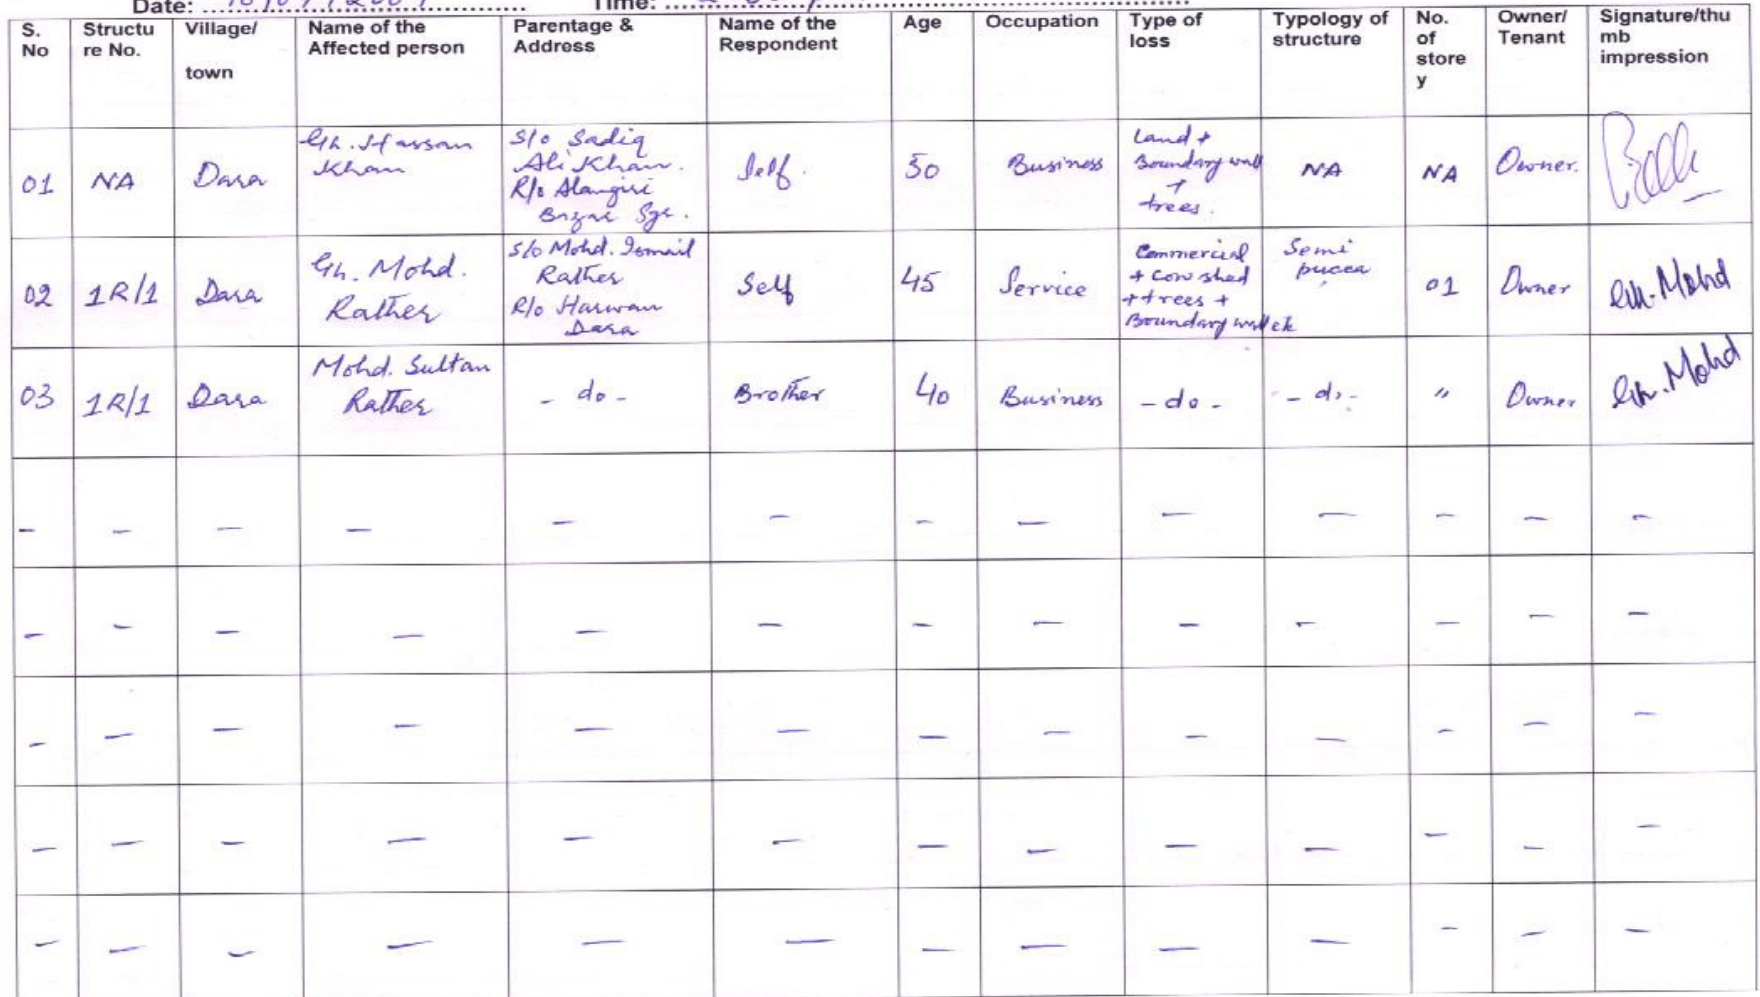 Date: Time:
S. No Structu re No. Village/ town Name of the Affected person Parentage & Address Name of the Respondent Age Occupation Type of loss Typology of structure No. of store y Owner/ Tenant Signature/thu mb impression
01 NA Dara Gh. Hassan Khan S/o Sadiq Ali Khan. R/o Alamgiri Bazar Sgr. Self. 50 Business Land + Boundary wall + trees. NA NA Owner.
02 1R/1 Dara Gh. Mohd. Rather S/o Mohd. Ismail Rather R/o Harwan Dara Self 45 Service Commercial + cow shed + trees + Boundary wall etc Semi pucca 01 Owner Gh. Mohd
03 1R/1 Dara Mohd. Sultan Rather - do - Brother 40 Business - do - - do - " Owner Gh. Mohd
- - - - - - - - - - - - -
- - - - - - - - - - - - -
- - - - - - - - - - - - -
- - - - - - - - - - - - -
- - - - - - - - - - - - -